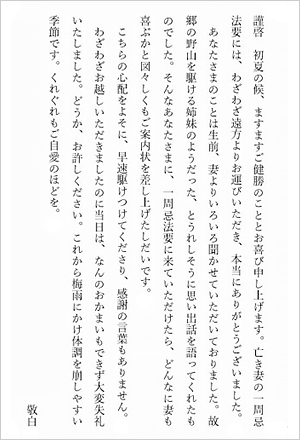 謹啓　初夏の候、ますますご健勝のこととお喜び申し上げます。亡き妻の一周忌
法要には、わざわざ遠方よりお運びいただき、本当にありがとうございました。
あなたさまのことは生前、妻よりいろいろ聞かせていただいておりました。故
郷の野山を駆ける姉妹のようだった、とうれしそうに思い出話を語ってくれたも
のでした。そんなあなたさまに、一周忌法要に来ていただけたら、どんなに妻も
喜ぶかと図々しくもご案内状を差し上げたしだいです。
こちらの心配をよそに、早速駆けつけてくださり、感謝の言葉もありません。
わざわざお越しいただきましたのに当日は、なんのおかまいもできず大変失礼
いたしました。どうか、お許しください。これから梅雨にかけ体調を崩しやすい
季節です。くれぐれもご自愛のほどを。
敬白